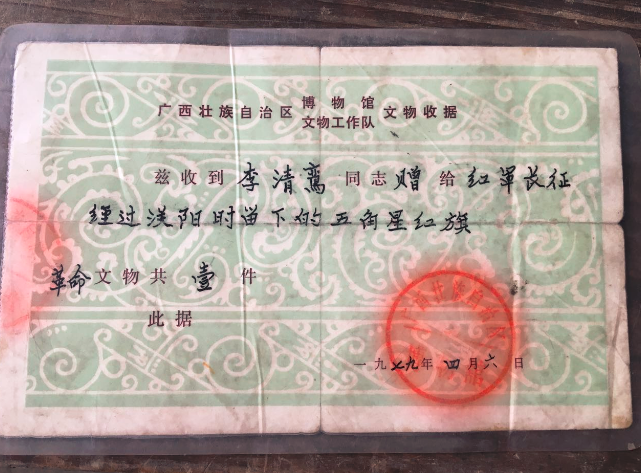 广西壮族自治区博物馆文物工作队文物收据
兹收到李清鸾同志赠给红军长征
经过灌阳时留下的五角星红旗
革命文物共壹件
此据
一九七九年四月六日